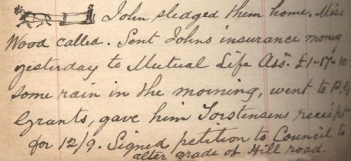 John sledged them home. Miss
Wood called. Sent Johns insurance money
yesterday to Mutual Life Assn £1-17-10
some rain in the morning, went to P. G
Grants, gave him Torstensens receipt
for 12/9. Signed petition to Council to
alter grade of Hill road.